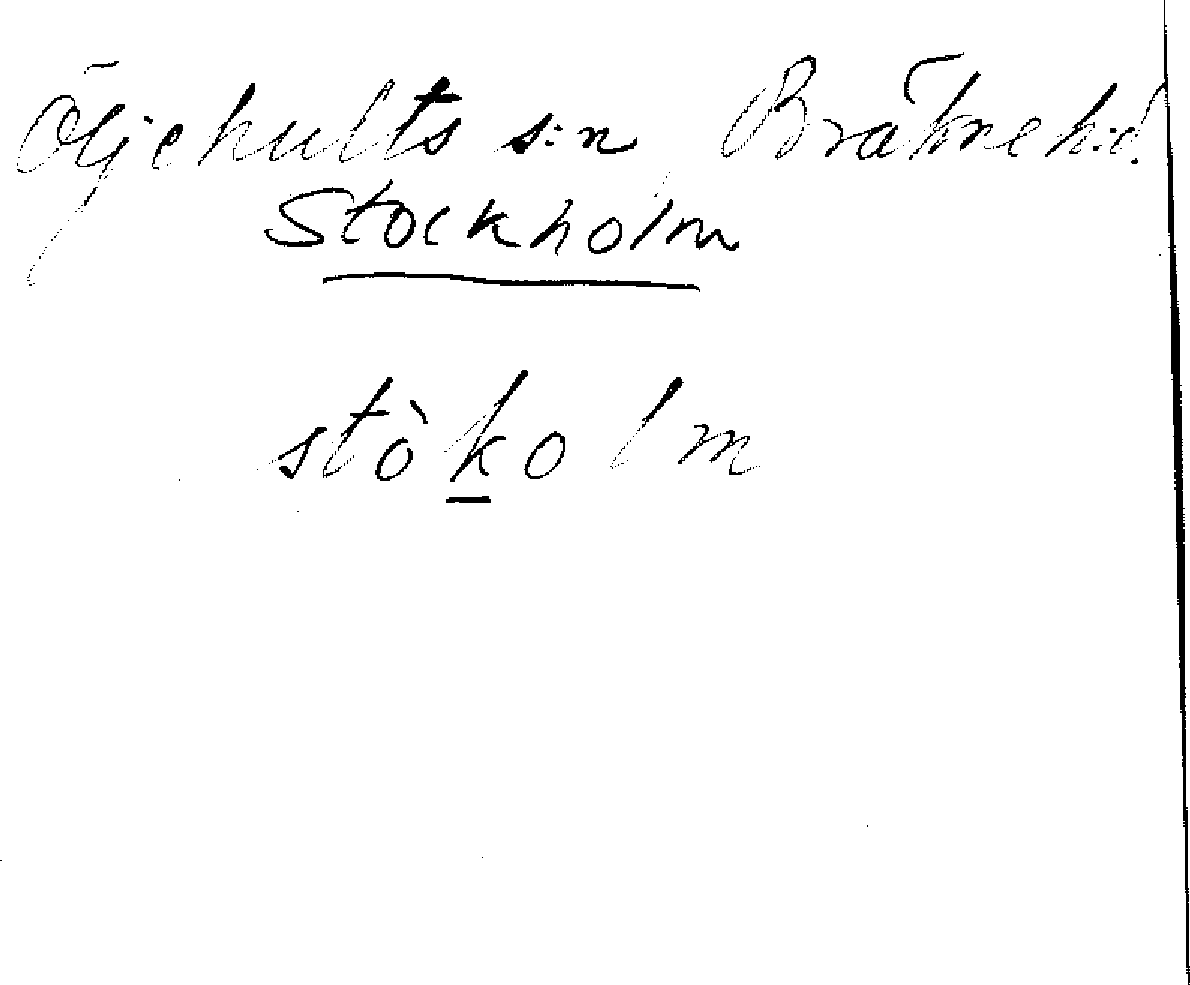 Öljehults s:n Bräkne h:d.
Stockholm
stòkolm